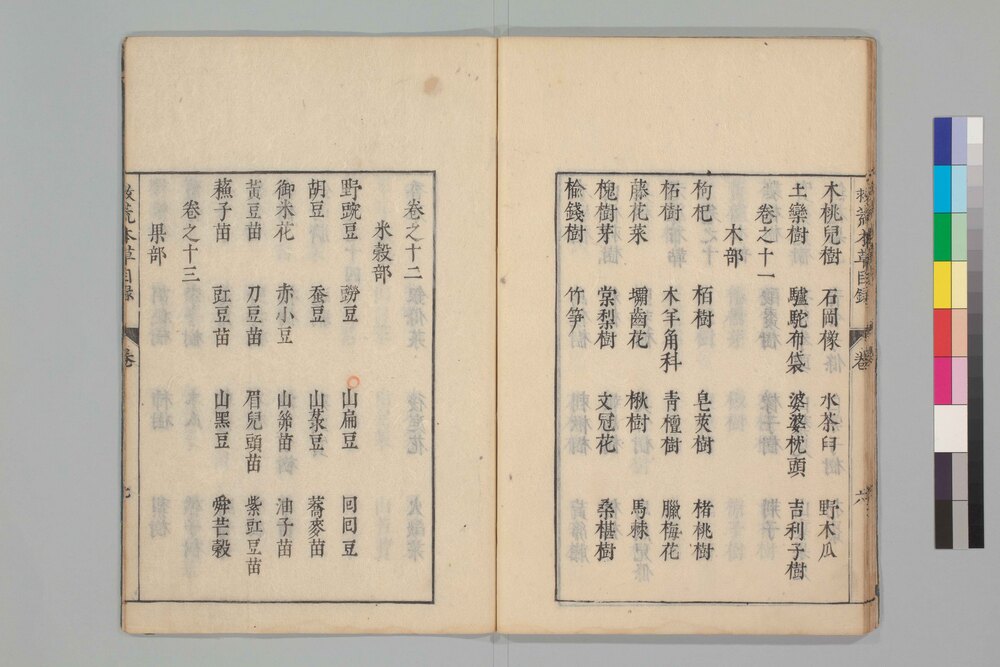 木桃兒樹 石岡橡 水茶臼 野木瓜
土欒樹 驢駝布袋 婆婆枕頭 吉利子樹
卷之十一
木部
枸杞 栢樹 皂莢樹 楮桃樹
柘樹 木羊角科 青檀樹 臘梅花
藤花菜 壩齒花 楸樹 馬棘
槐樹芽 棠梨樹 文冠花 桑椹樹
榆錢樹 竹笋
卷之十二
米穀部
野豌豆 䝁豆 山扁豆 回回豆
胡豆 蚕豆 山菉豆 蕎麥苗
御米花 赤小豆 山絲苗 油子苗
黃豆苗 刀豆苗 眉兒頭苗 紫豇豆苗
蘓子苗 豇豆苗 山黑豆 舜芒穀
卷之十三
果部
救荒本草目録 卷 七
救荒本草目録 卷 六